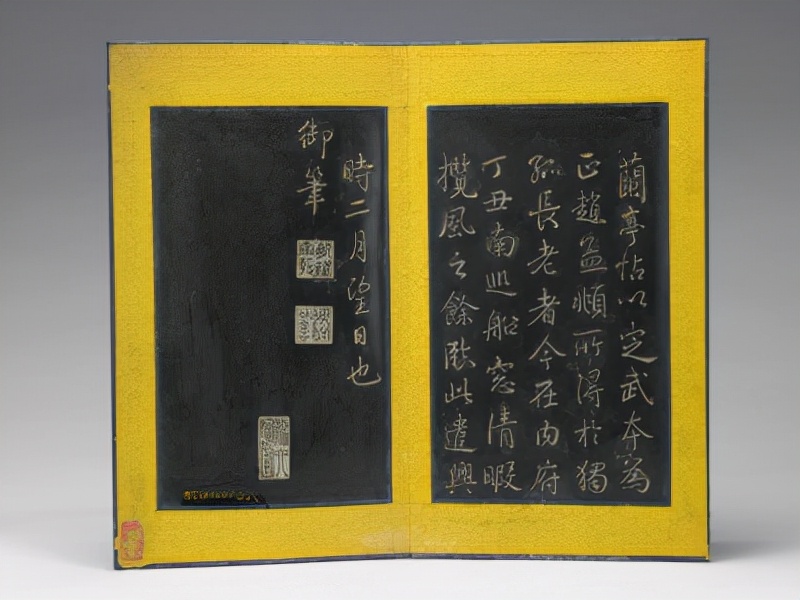 蘭亭帖以定武本為
正趙孟頫所得於獨
孤長老者今在内府
丁丑南巡船窓清暇
攬風之餘臨此遣興
時二月望日也
御筆